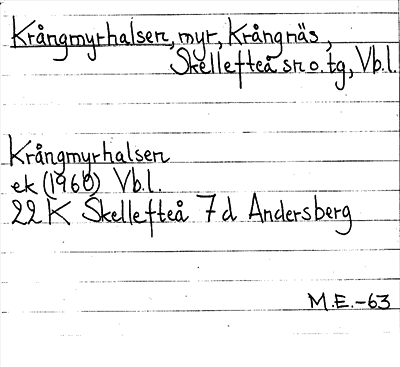 Krångmyrhalsen, myr, Krångnäs,
Skellefteå sn o. tg, Vb.l.
Krångmyrhalsen
ek (1960) Vb.l.
22 K Skellefteå 7 d Andersberg
M.E.-63